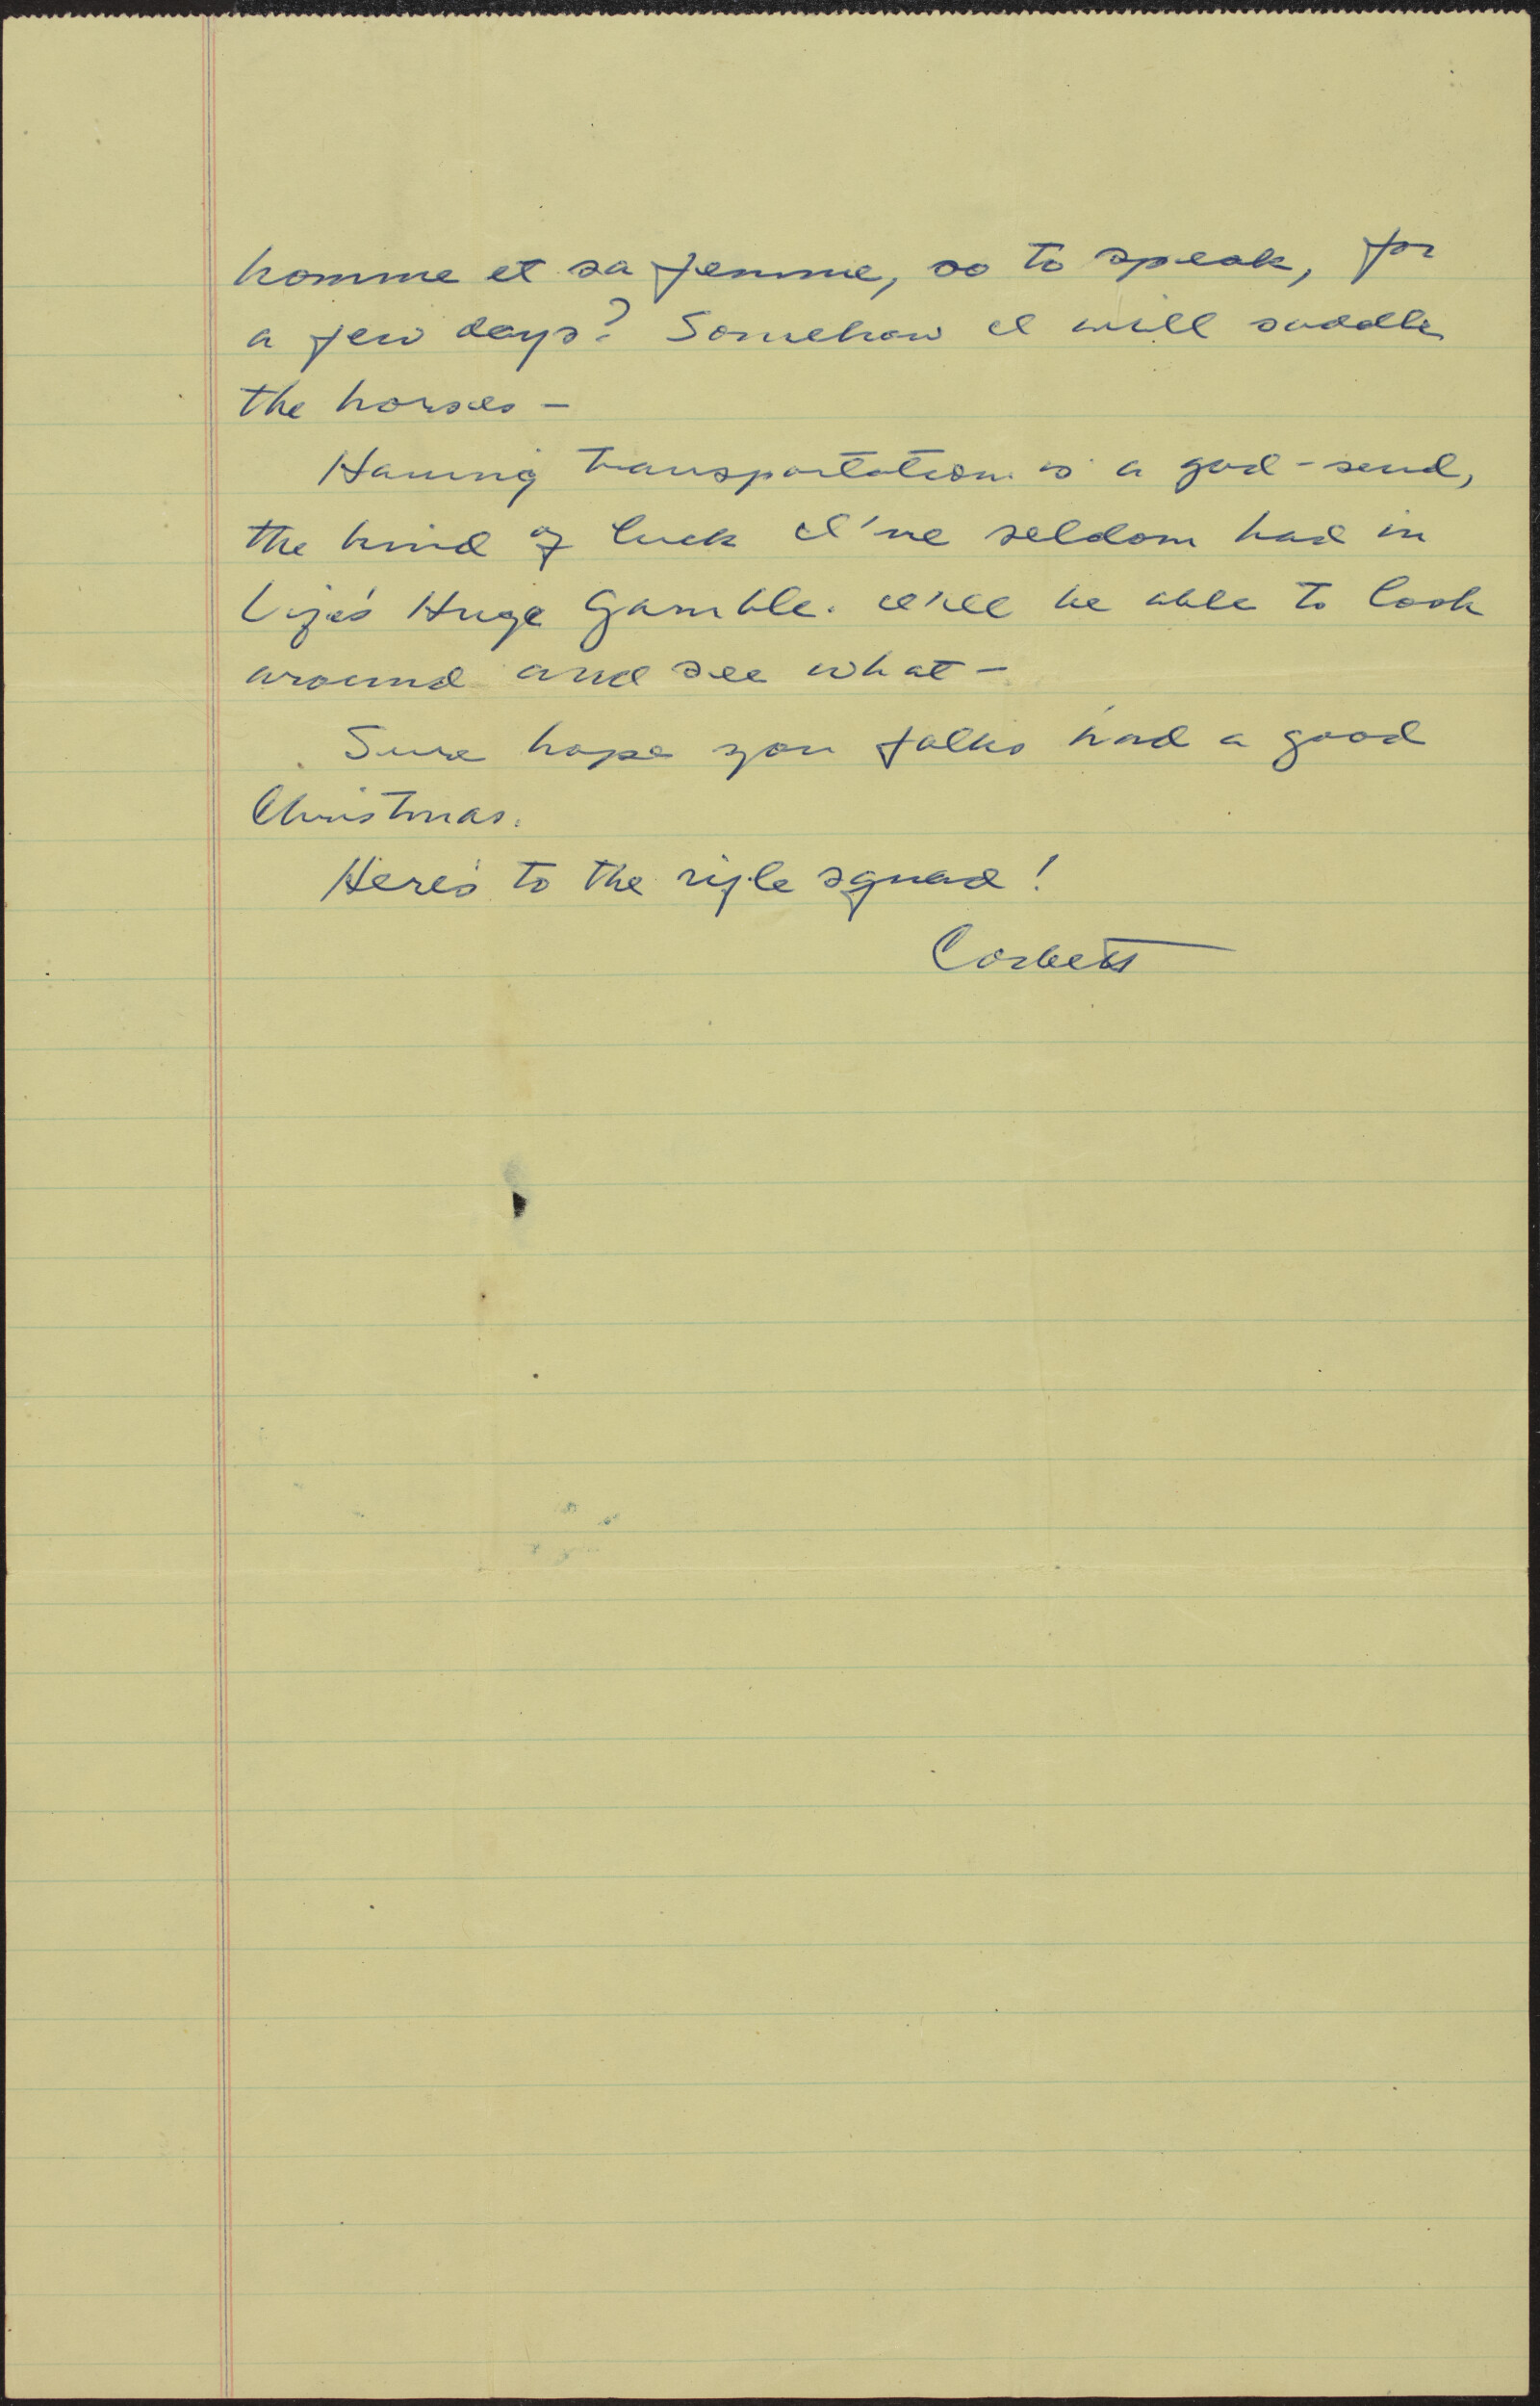 homme et sa femme, so to speak, for
a few days? Somehow I will saddle
the horses —
Having transportation is a god-send,
the kind of luck I've seldom had in
Life's Huge Gamble. I'll be able to look
around and see what —
Sure hope you folks had a good
Christmas.
Here's to the rifle squad!
Corbett